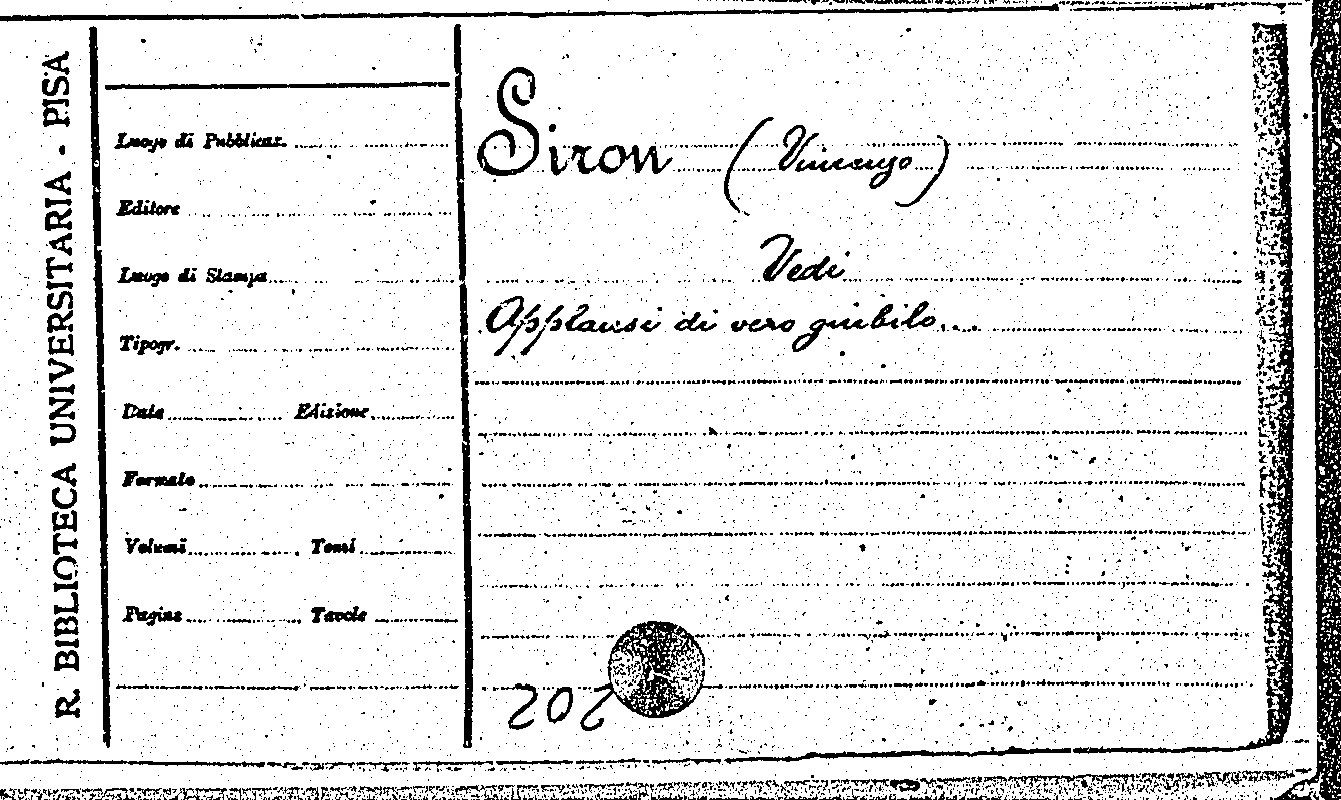 R. BIBLIOTECA UNIVERSITARIA - PISA
Luogo di Pubblicaz.
Editore
Luogo di Stampa
Tipogr.
Data Edizione
Formato
Volumi Tomi
Pagine Tavole
Siron (Vincenzo)
Vedi
Applausi di vero giubilo...
202